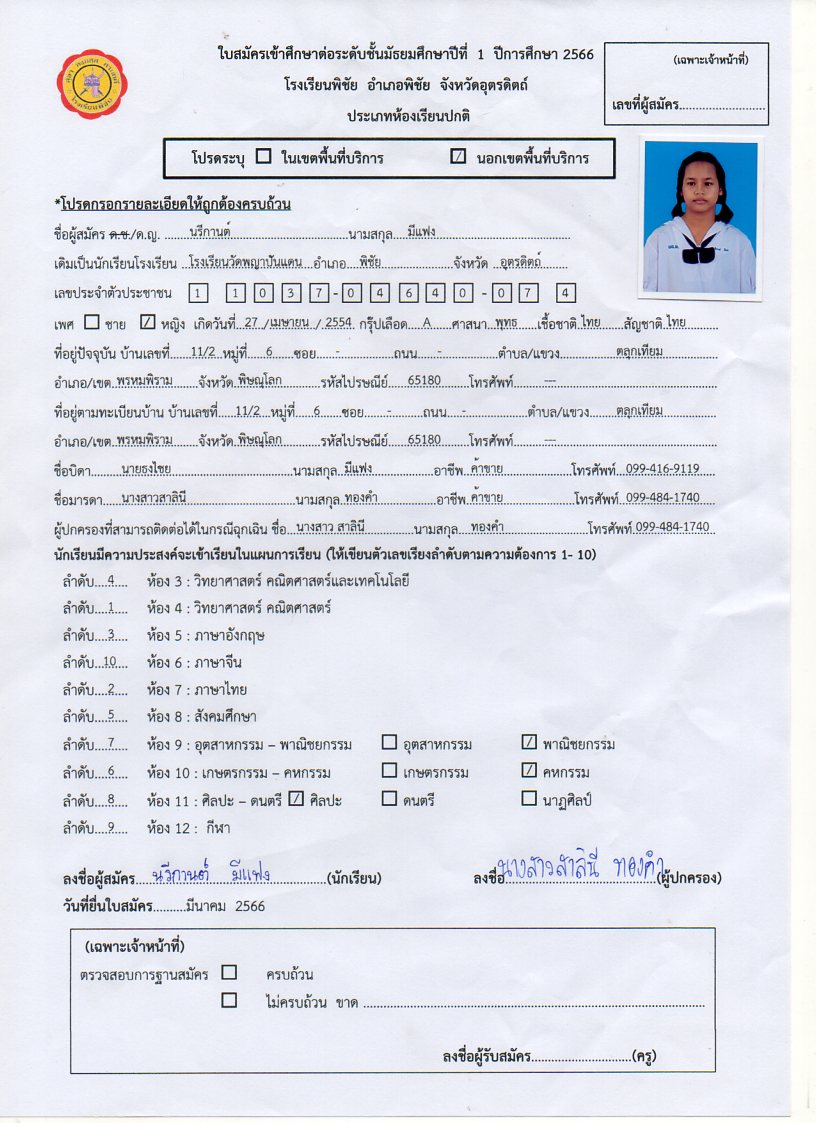 ใบสมัครเข้าศึกษาต่อระดับชั้นมัธยมศึกษาปีที่ 1 ปีการศึกษา 2566
โรงเรียนพิชัย อำเภอพิชัย จังหวัดอุตรดิตถ์
ประเภทห้องเรียนปกติ
(เฉพาะเจ้าหน้าที่)
เลขที่ผู้สมัคร..........................
โปรดระบุ ☐ ในเขตพื้นที่บริการ ☑ นอกเขตพื้นที่บริการ
*โปรดกรอกรายละเอียดให้ถูกต้องครบถ้วน
ชื่อผู้สมัคร ด.ช./ด.ญ. นรีกานต์ นามสกุล มีแฟง
เดิมเป็นนักเรียนโรงเรียน โรงเรียนวัดพญาปันแดน อำเภอ พิชัย จังหวัด อุตรดิตถ์
เลขประจำตัวประชาชน 1 1 0 3 7 - 0 4 6 4 0 - 0 7 4
เพศ ☐ ชาย ☑ หญิง เกิดวันที่ 27 /เมษายน / 2554 กรุ๊ปเลือด A ศาสนา พุทธ เชื้อชาติ ไทย สัญชาติ ไทย
ที่อยู่ปัจจุบัน บ้านเลขที่ 11/2 หมู่ที่ 6 ซอย - ถนน - ตำบล/แขวง ตลุกเทียม
อำเภอ/เขต พรหมพิราม จังหวัด พิษณุโลก รหัสไปรษณีย์ 65180 โทรศัพท์ ---
ที่อยู่ตามทะเบียนบ้าน บ้านเลขที่ 11/2 หมู่ที่ 6 ซอย - ถนน - ตำบล/แขวง ตลุกเทียม
อำเภอ/เขต พรหมพิราม จังหวัด พิษณุโลก รหัสไปรษณีย์ 65180 โทรศัพท์ ---
ชื่อบิดา นายธงไชย นามสกุล มีแฟง อาชีพ ค้าขาย โทรศัพท์ 099-416-9119
ชื่อมารดา นางสาวสาลินี นามสกุล ทองคำ อาชีพ ค้าขาย โทรศัพท์ 099-484-1740
ผู้ปกครองที่สามารถติดต่อได้ในกรณีฉุกเฉิน ชื่อ นางสาว สาลินี นามสกุล ทองคำ โทรศัพท์ 099-484-1740
นักเรียนมีความประสงค์จะเข้าเรียนในแผนการเรียน (ให้เขียนตัวเลขเรียงลำดับตามความต้องการ 1- 10)
ลำดับ....4.... ห้อง 3 : วิทยาศาสตร์ คณิตศาสตร์และเทคโนโลยี
ลำดับ....1.... ห้อง 4 : วิทยาศาสตร์ คณิตศาสตร์
ลำดับ....3.... ห้อง 5 : ภาษาอังกฤษ
ลำดับ....10.... ห้อง 6 : ภาษาจีน
ลำดับ....2.... ห้อง 7 : ภาษาไทย
ลำดับ....5.... ห้อง 8 : สังคมศึกษา
ลำดับ....7.... ห้อง 9 : อุตสาหกรรม – พาณิชยกรรม ☐ อุตสาหกรรม ☑ พาณิชยกรรม
ลำดับ....6.... ห้อง 10 : เกษตรกรรม – คหกรรม ☐ เกษตรกรรม ☑ คหกรรม
ลำดับ....8.... ห้อง 11 : ศิลปะ – ดนตรี ☑ ศิลปะ ☐ ดนตรี ☐ นาฏศิลป์
ลำดับ....9.... ห้อง 12 : กีฬา
ลงชื่อผู้สมัคร นรีกานต์ มีแฟง (นักเรียน) ลงชื่อ นางสาวสาลินี ทองคำ (ผู้ปกครอง)
วันที่ยื่นใบสมัคร.........มีนาคม 2566
(เฉพาะเจ้าหน้าที่)
ตรวจสอบการฐานสมัคร ☐ ครบถ้วน
☐ ไม่ครบถ้วน ขาด ..........................
ลงชื่อผู้รับสมัคร..............................(ครู)